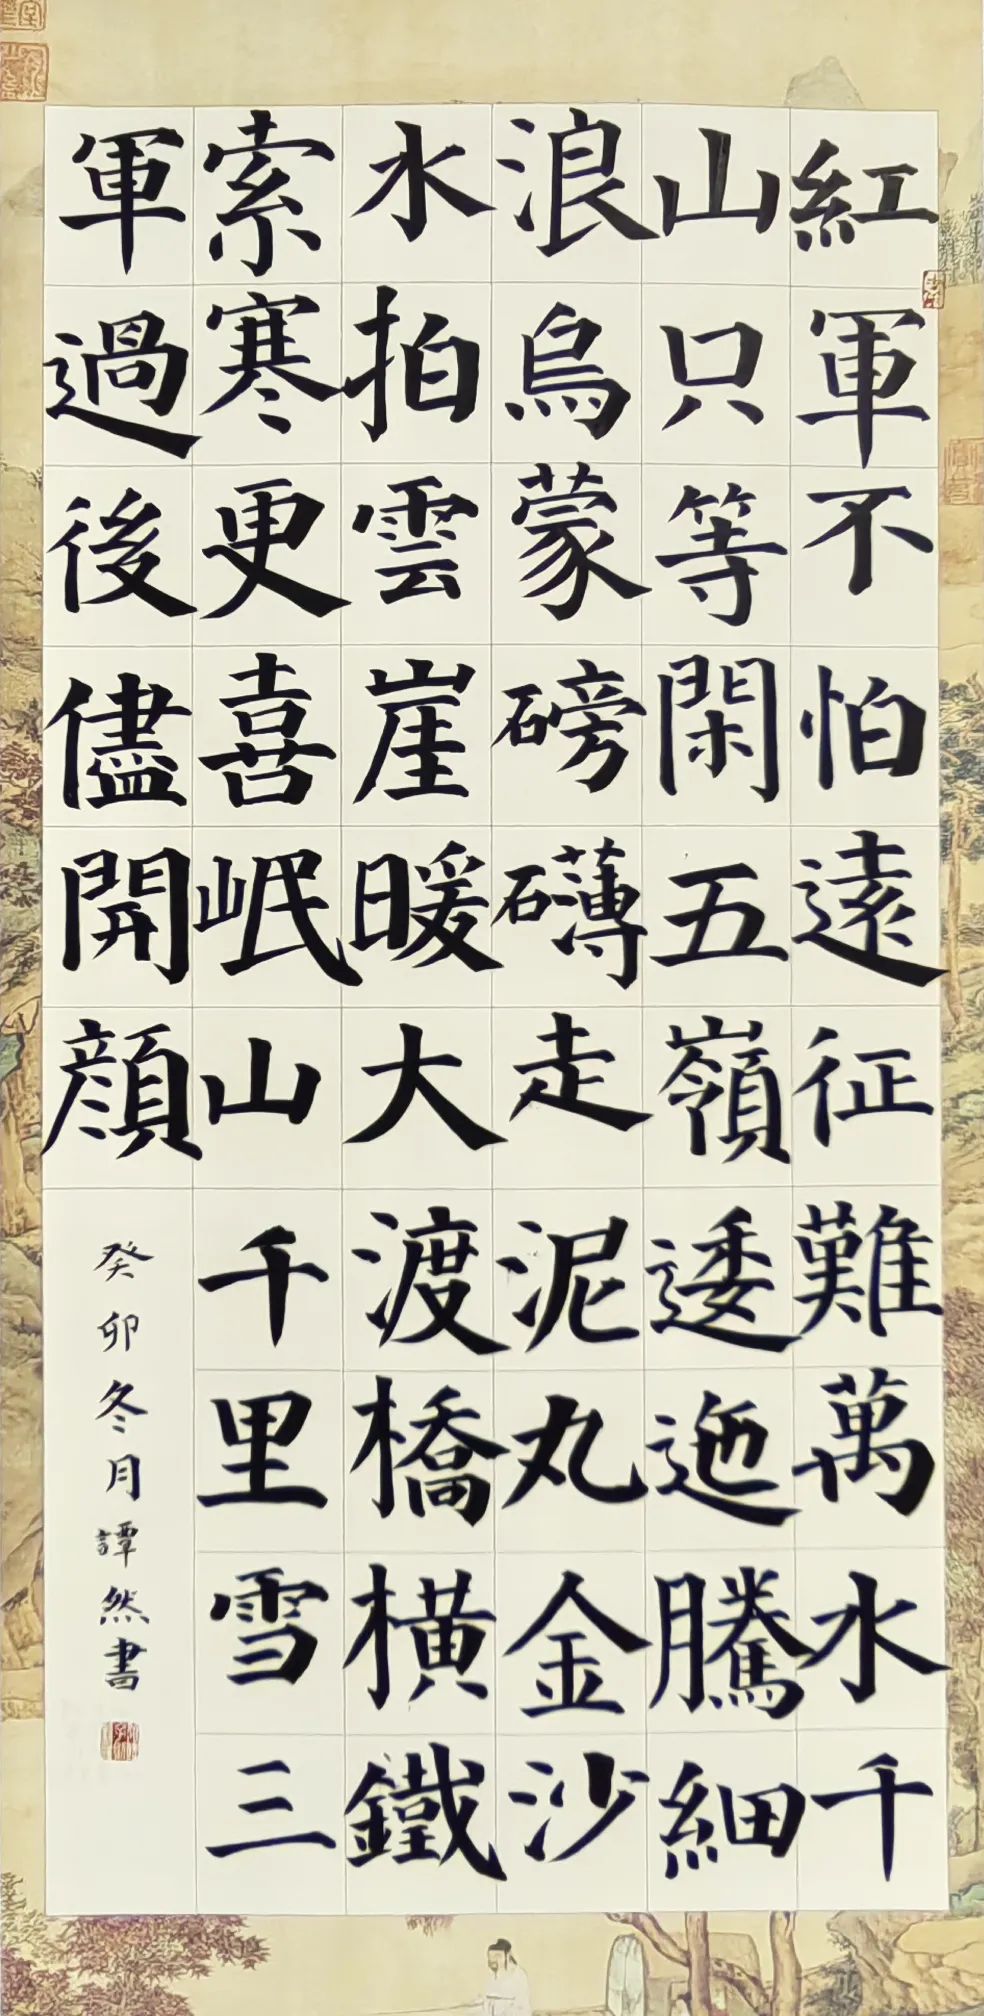 紅軍不怕遠征難萬水千
山只等閑五嶺逶迤騰細
浪烏蒙磅礴走泥丸金沙
水拍雲崖暖大渡橋橫鐵
索寒更喜岷山千里雪三
軍過後儘開顔
癸卯冬月譚然書